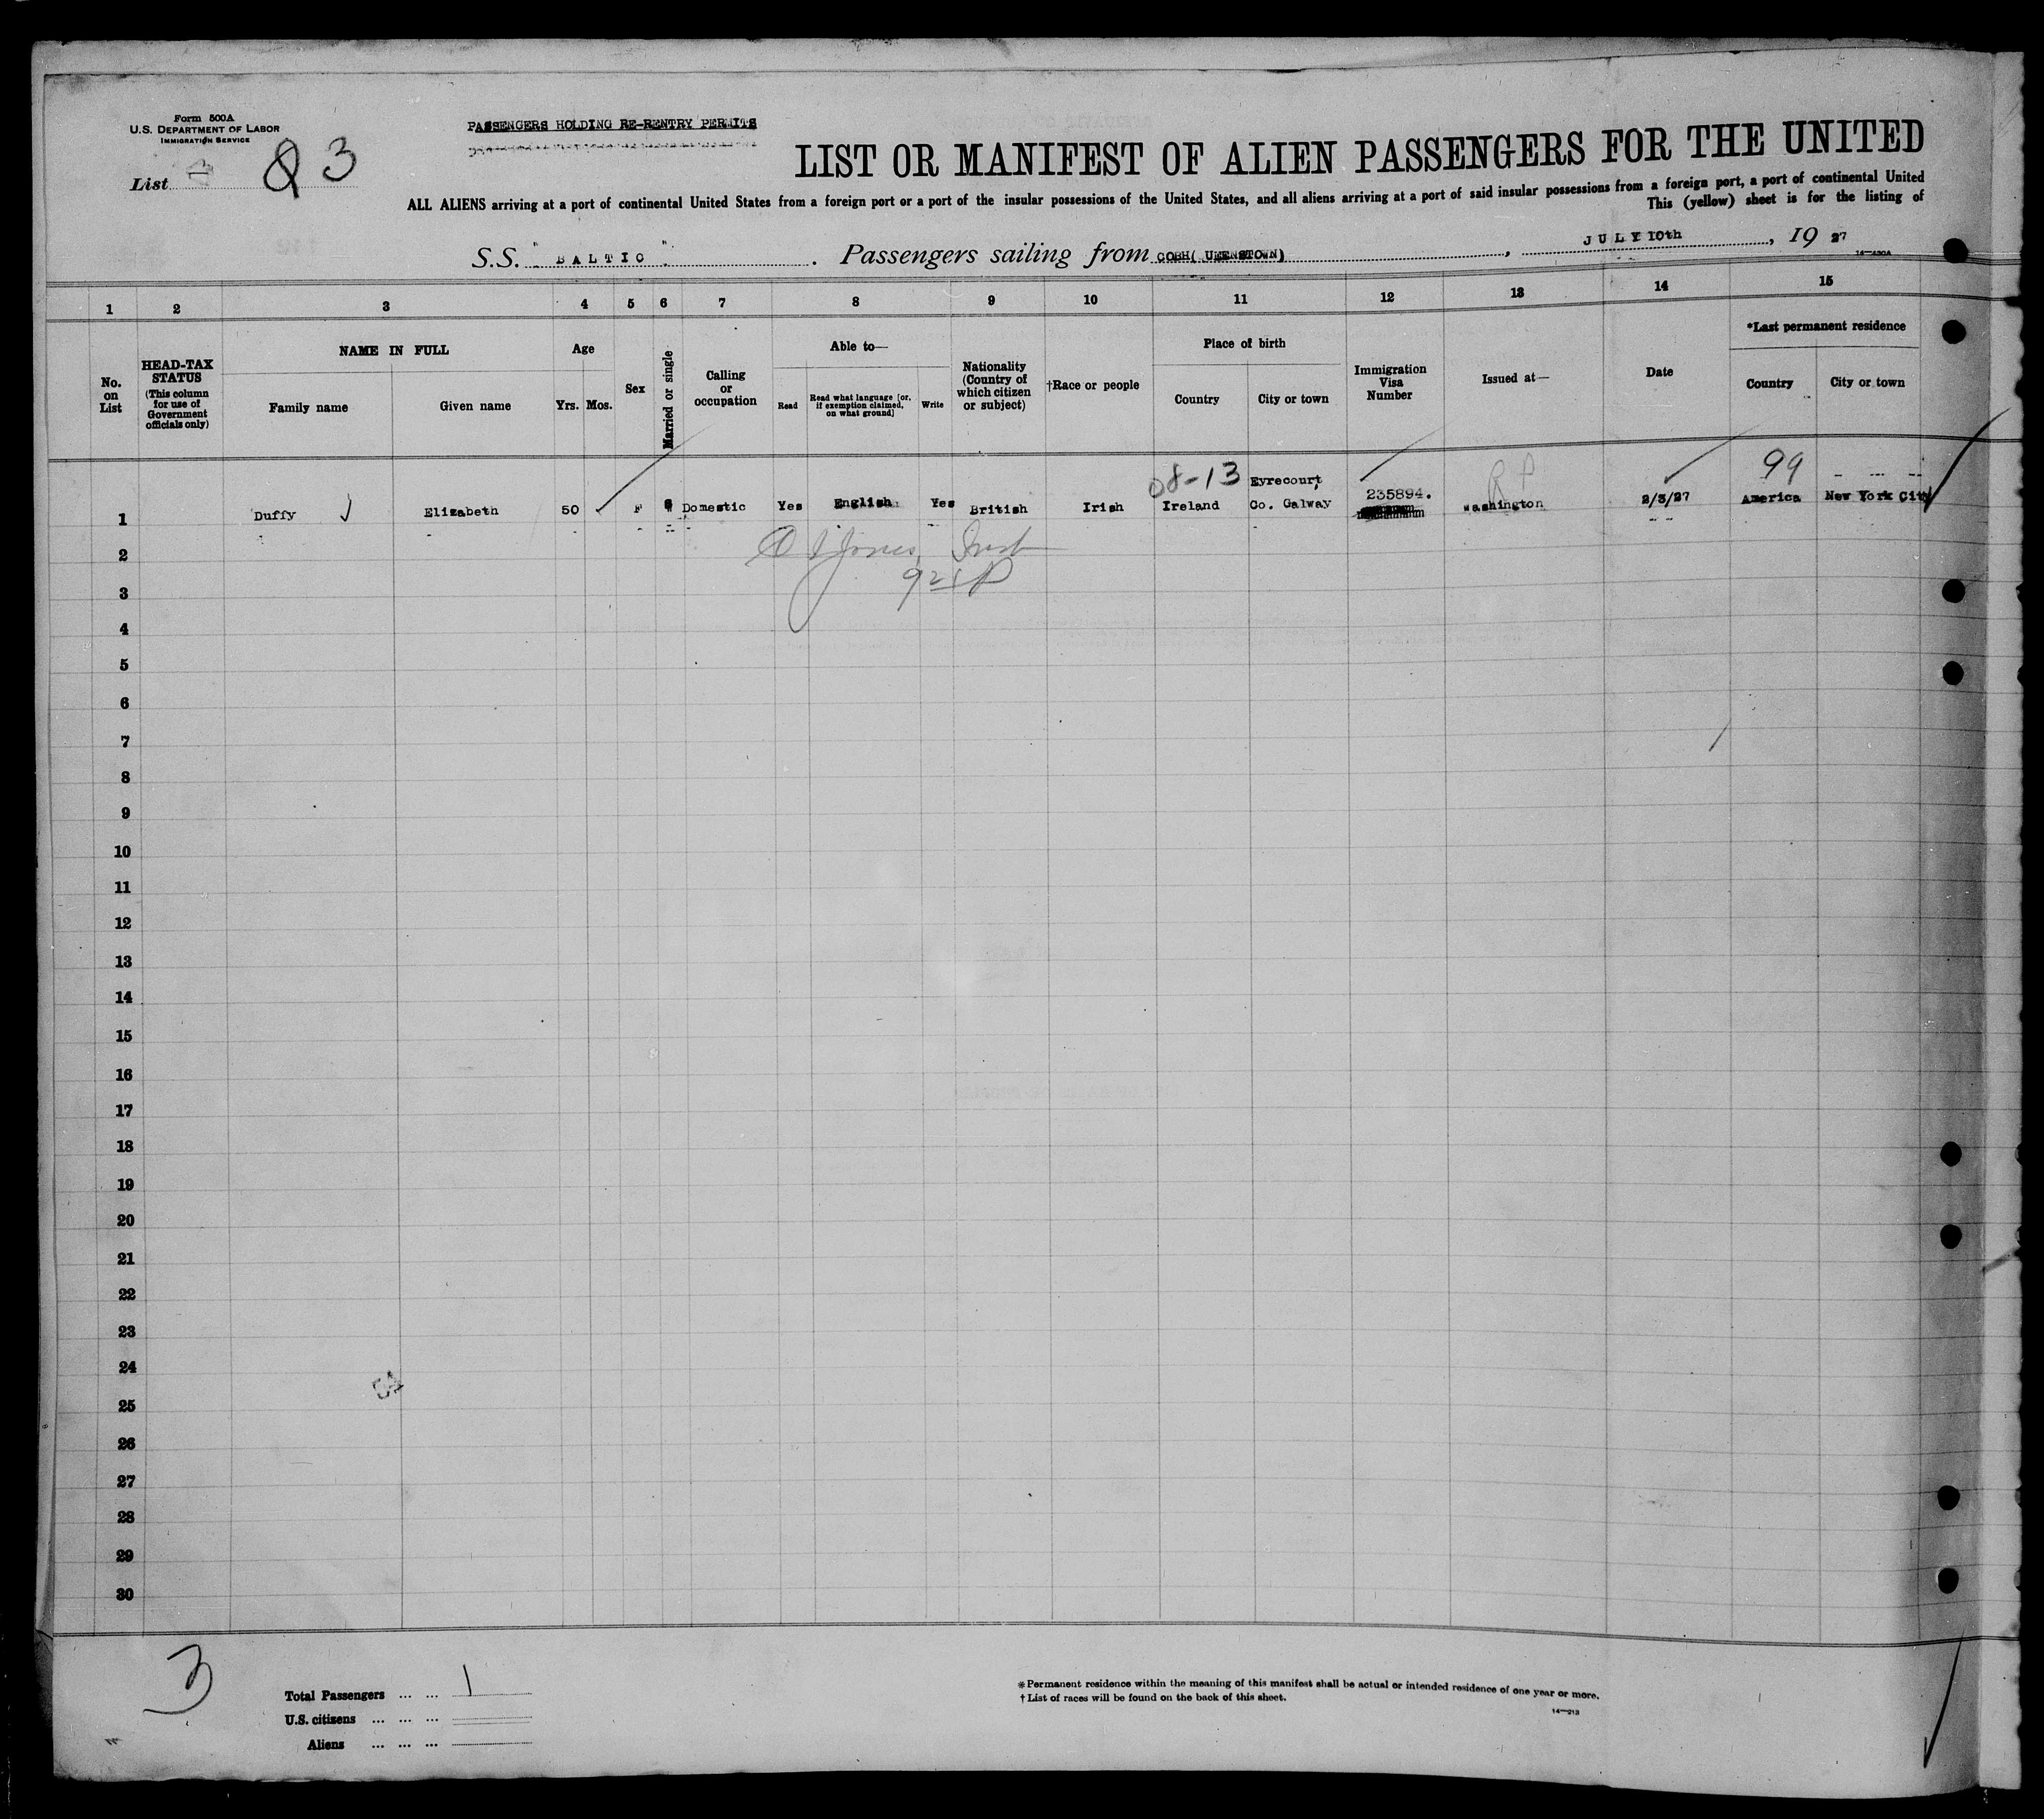 Form 500A
U.S. DEPARTMENT OF LABOR
IMMIGRATION SERVICE
List 83
PASSENGERS HOLDING RE-RENTRY PERMITS
LIST OR MANIFEST OF ALIEN PASSENGERS FOR THE UNITED
ALL ALIENS arriving at a port of continental United States from a foreign port or a port of the insular possessions of the United States, and all aliens arriving at a port of said insular possessions from a foreign port, a port of continental United
This (yellow) sheet is for the listing of
S.S. "BALTIC". Passengers sailing from COBH( UEENSTOWN), JULY 10th, 19 27
14—430A
1 2 3 4 5 6 7 8 9 10 11 12 13 14 15
No. on List
HEAD-TAX STATUS (This column for use of Government officials only)
NAME IN FULL
Family name
Given name
Age
Yrs. Mos.
Sex
Married or single
Calling or occupation
Able to—
Read
Read what language [or, if exemption claimed, on what ground]
Write
Nationality (Country of which citizen or subject)
†Race or people
Place of birth
Country
City or town
Immigration Visa Number
Issued at—
Date
*Last permanent residence
Country
City or town
08-13
99
1 Duffy Elizabeth 50 F Domestic Yes English Yes British Irish Ireland Eyrecourt, Co. Galway 235894. Washington 2/3/27 America New York City
2
3
4
5
6
7
8
9
10
11
12
13
14
15
16
17
18
19
20
21
22
23
24
25
26
27
28
29
30
3
Total Passengers ... ... 1
U.S. citizens ... ... ...
Aliens ... ... ...
*Permanent residence within the meaning of this manifest shall be actual or intended residence of one year or more.
†List of races will be found on the back of this sheet.
14—213